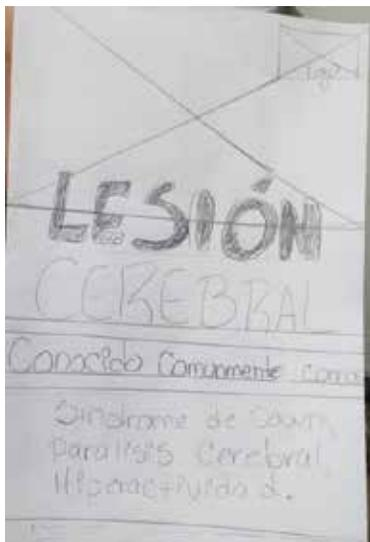 Logo
LESIÓN
CEREBRAL
Conocido Comunmente como
Sindrome de Down,
Paralisis Cerebral,
Hiperactividad.